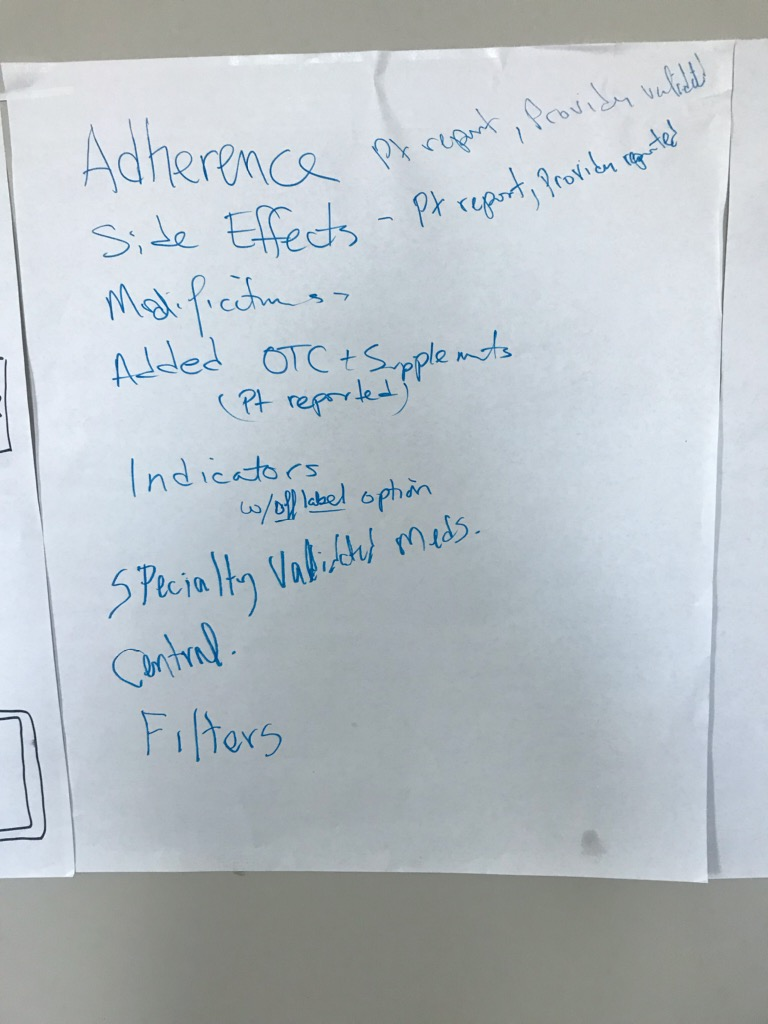 Adherence Pt report, Provider validated
Side Effects - Pt report, Provider reported
Modifications →
Added OTC + Supplements
(Pt reported)
Indicators
w/off label option
Specialty Validated Meds.
Central.
Filters